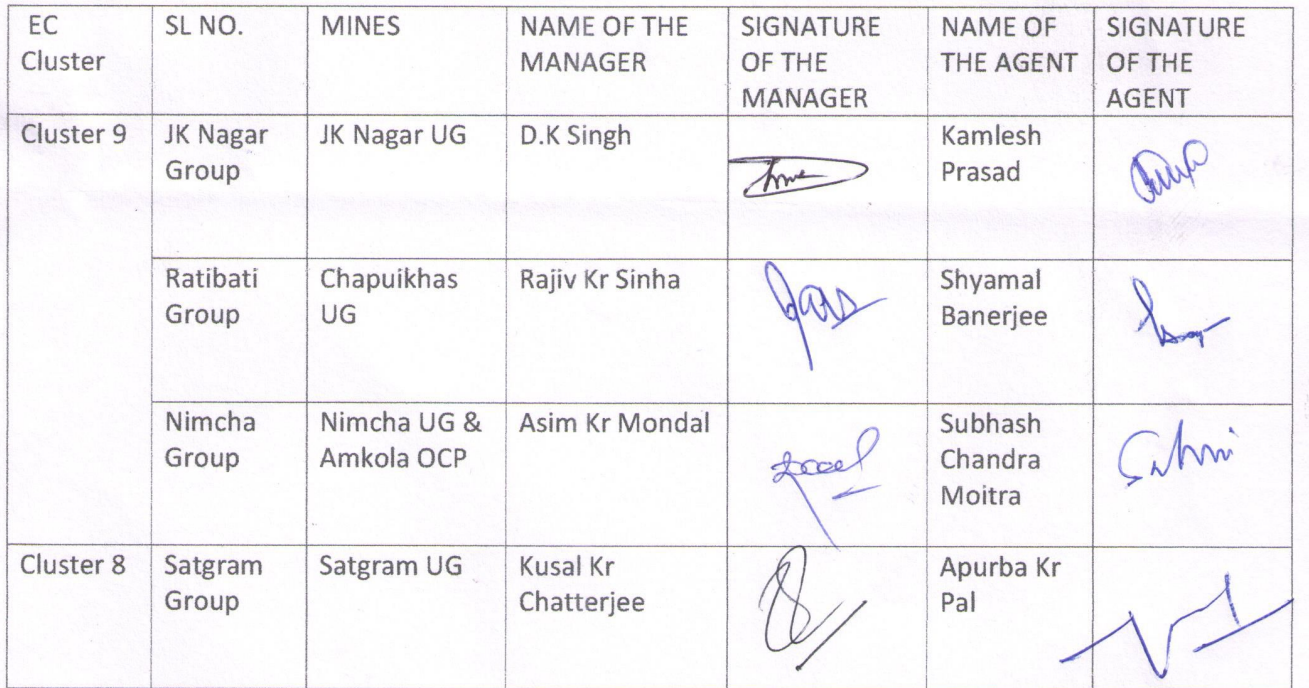 EC Cluster
SL NO.
MINES
NAME OF THE MANAGER
SIGNATURE OF THE MANAGER
NAME OF THE AGENT
SIGNATURE OF THE AGENT
Cluster 9
JK Nagar Group
JK Nagar UG
D.K Singh
Kamlesh Prasad
Ratibati Group
Chapuikhas UG
Rajiv Kr Sinha
Shyamal Banerjee
Nimcha Group
Nimcha UG & Amkola OCP
Asim Kr Mondal
Subhash Chandra Moitra
Cluster 8
Satgram Group
Satgram UG
Kusal Kr Chatterjee
Apurba Kr Pal